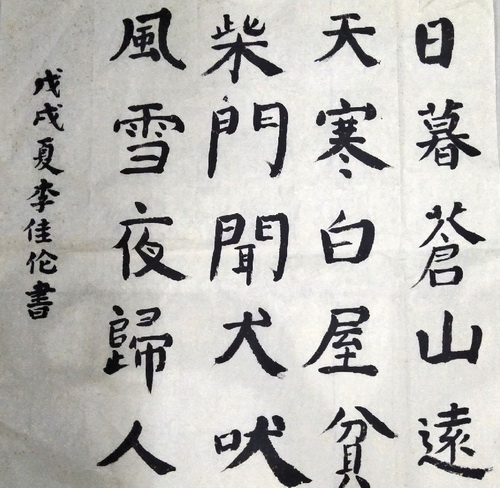 日暮蒼山遠
天寒白屋貧
柴門聞犬吠
風雪夜歸人
戊戌夏李佳伦書